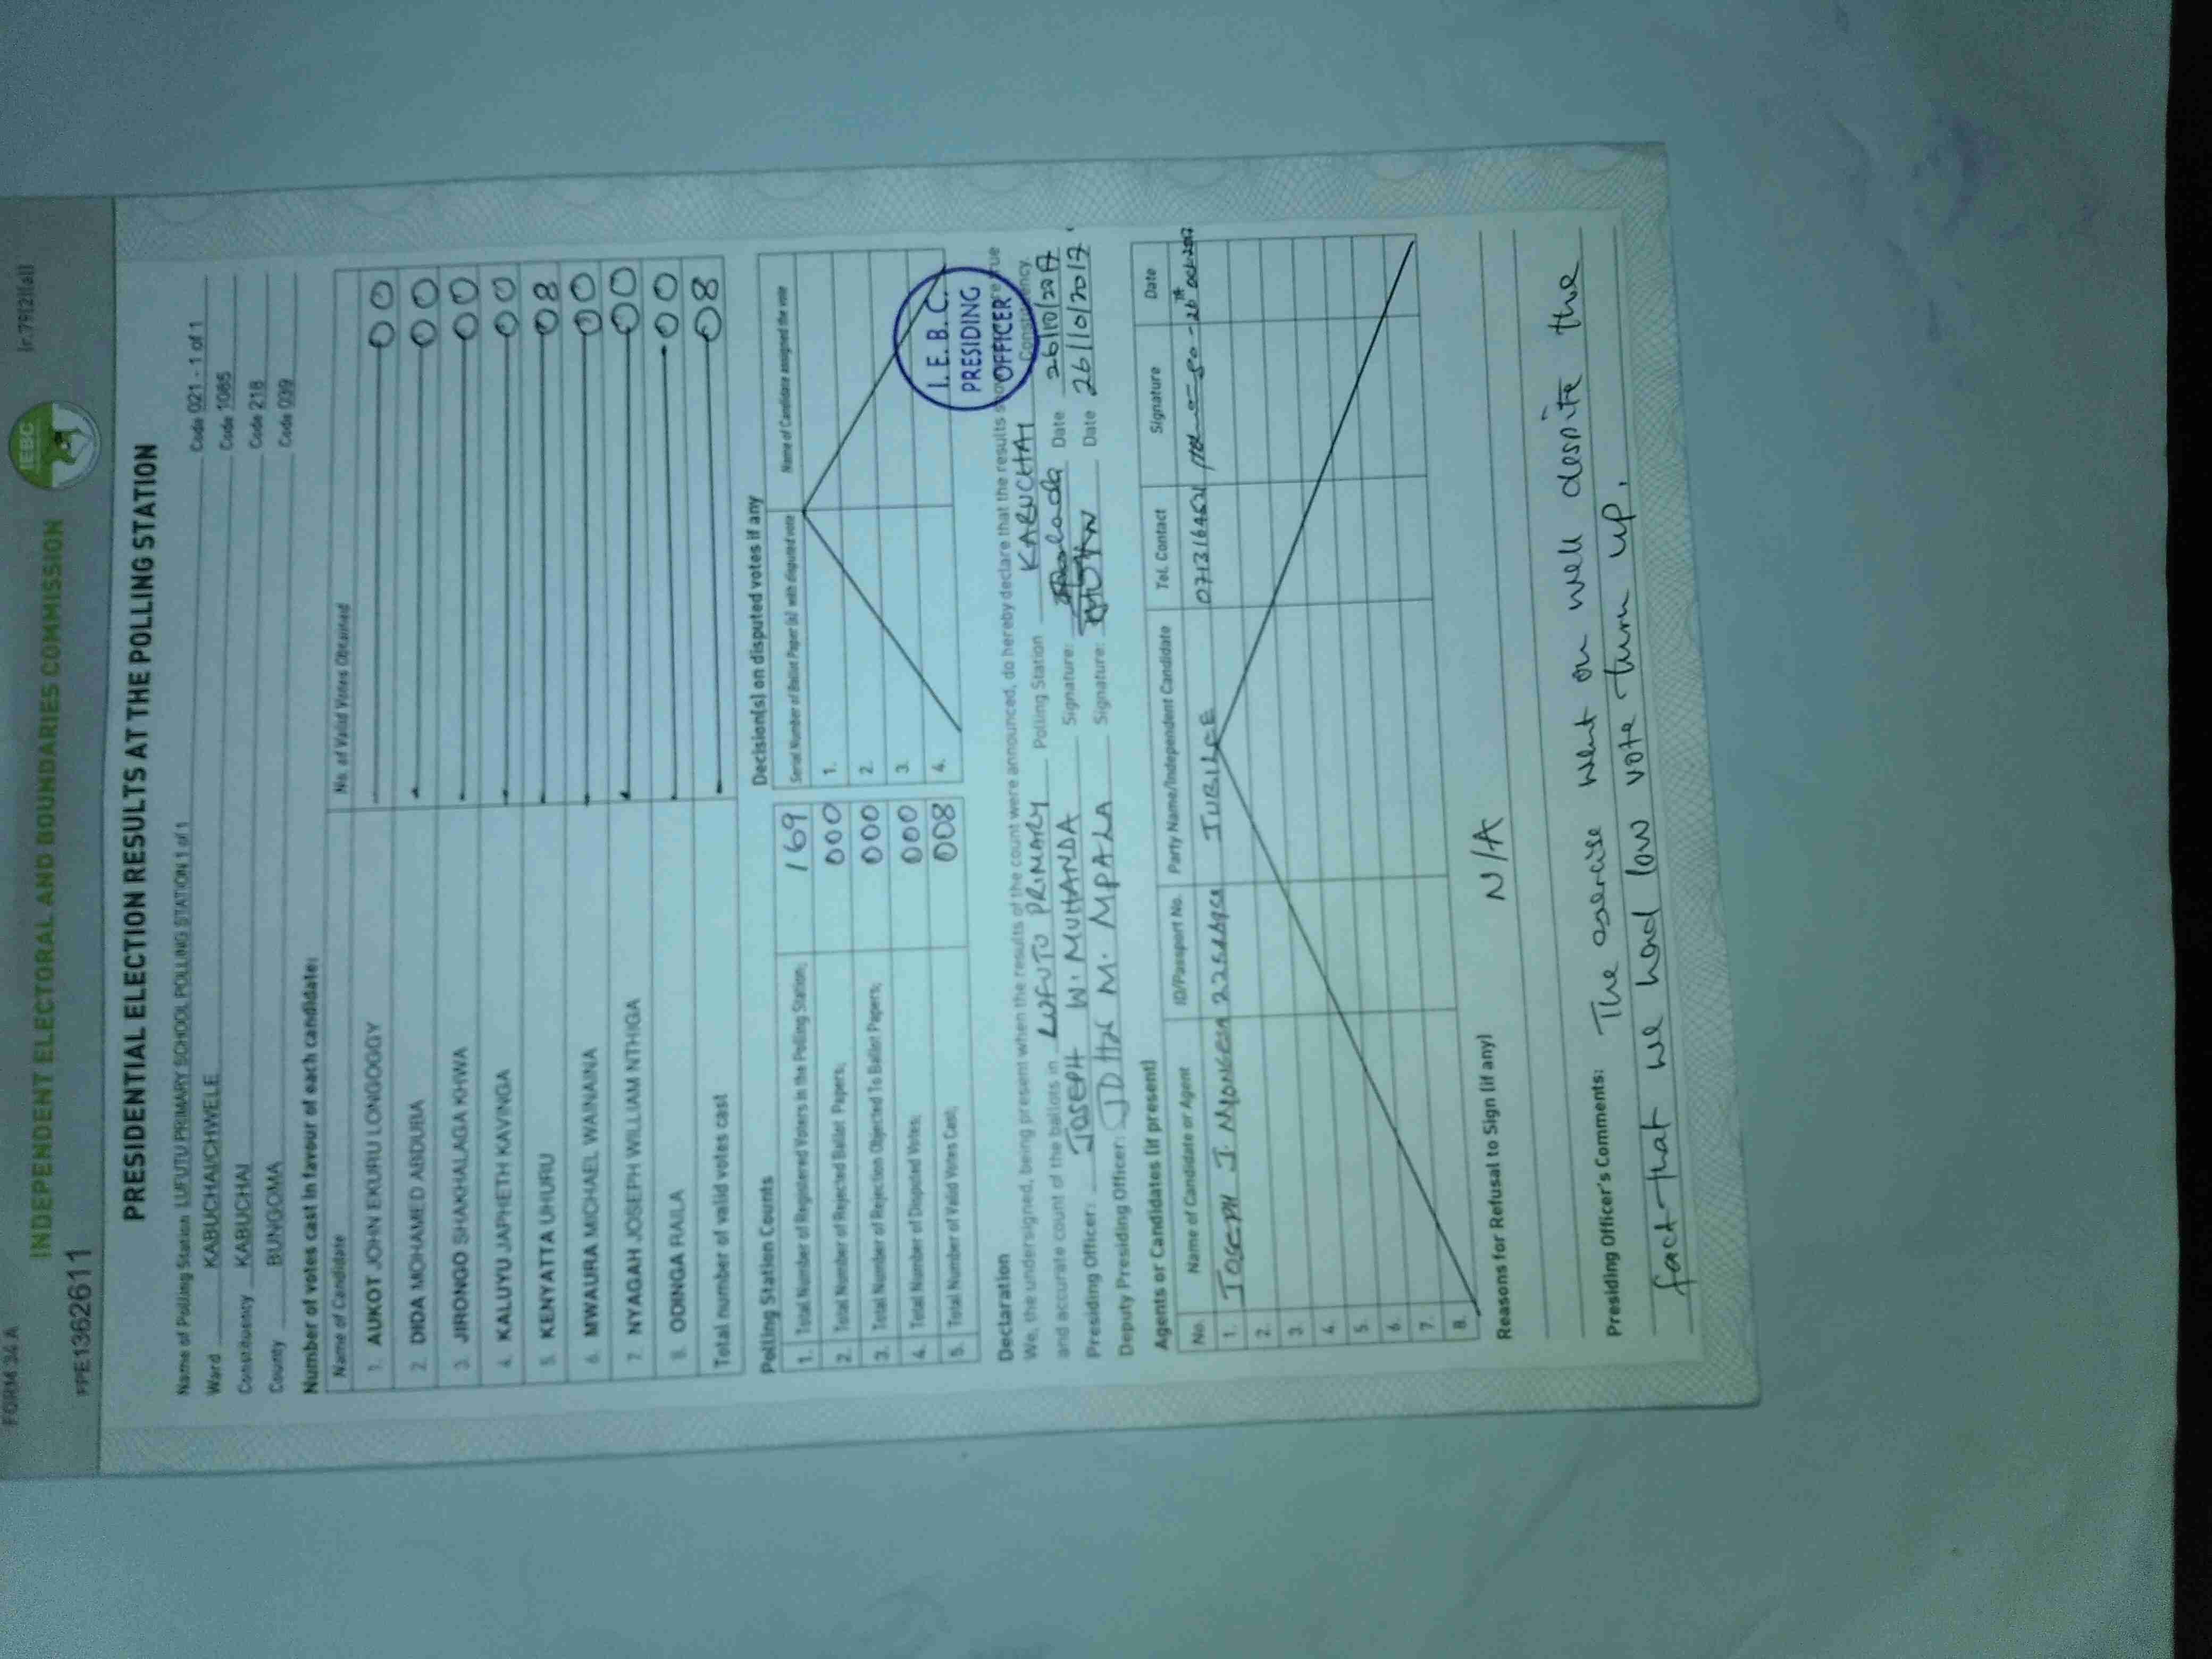 FORM 34 A
(r.79(2)(a))
INDEPENDENT ELECTORAL AND BOUNDARIES COMMISSION
IEBC
PPE1362611
PRESIDENTIAL ELECTION RESULTS AT THE POLLING STATION
Name of Polling Station LUFUTU PRIMARY SCHOOL POLLING STATION 1 of 1 Code 021 - 1 of 1
Ward KABUCHAI/CHWELE Code 1085
Constituency KABUCHAI Code 218
County BUNGOMA Code 039
Number of votes cast in favour of each candidate:
Name of Candidate No. of Valid Votes Obtained
1. AUKOT JOHN EKURU LONGOGGY 00
2. DIDA MOHAMED ABDUBA 00
3. JIRONGO SHAKHALAGA KHWA 00
4. KALUYU JAPHETH KAVINGA 00
5. KENYATTA UHURU 08
6. MWAURA MICHAEL WAINAINA 00
7. NYAGAH JOSEPH WILLIAM NTHIGA 00
8. ODINGA RAILA 00
Total number of valid votes cast 08
Polling Station Counts
1. Total Number of Registered Voters in the Polling Station; 169
2. Total Number of Rejected Ballot Papers; 000
3. Total Number of Rejection Objected To Ballot Papers; 000
4. Total Number of Disputed Votes; 000
5. Total Number of Valid Votes Cast; 008
Decision(s) on disputed votes if any
Serial Number of Ballot Paper (s) with disputed vote Name of Candidate assigned the vote
1.
2.
3.
4.
I. E. B. C.
PRESIDING
OFFICER
Declaration
We, the undersigned, being present when the results of the count were announced, do hereby declare that the results shown are true
and accurate count of the ballots in LUFUTO PRIMARY Polling Station KABUCHAI Constituency.
Presiding Officer: JOSEPH W. MUHANDA Signature: Date 26/10/2017
Deputy Presiding Officer: M. MPALA Signature: Date 26/10/2017
Agents or Candidates (if present)
No. Name of Candidate or Agent ID/Passport No. Party Name/Independent Candidate Tel. Contact Signature Date
1. JOSEPH J. JUBILEE 26TH oct 2017
2.
3.
4.
5.
6.
7.
8.
Reasons for Refusal to Sign (if any) N/A
Presiding Officer's Comments: The exercise went on well despite the
fact-that we had low vote turn up.